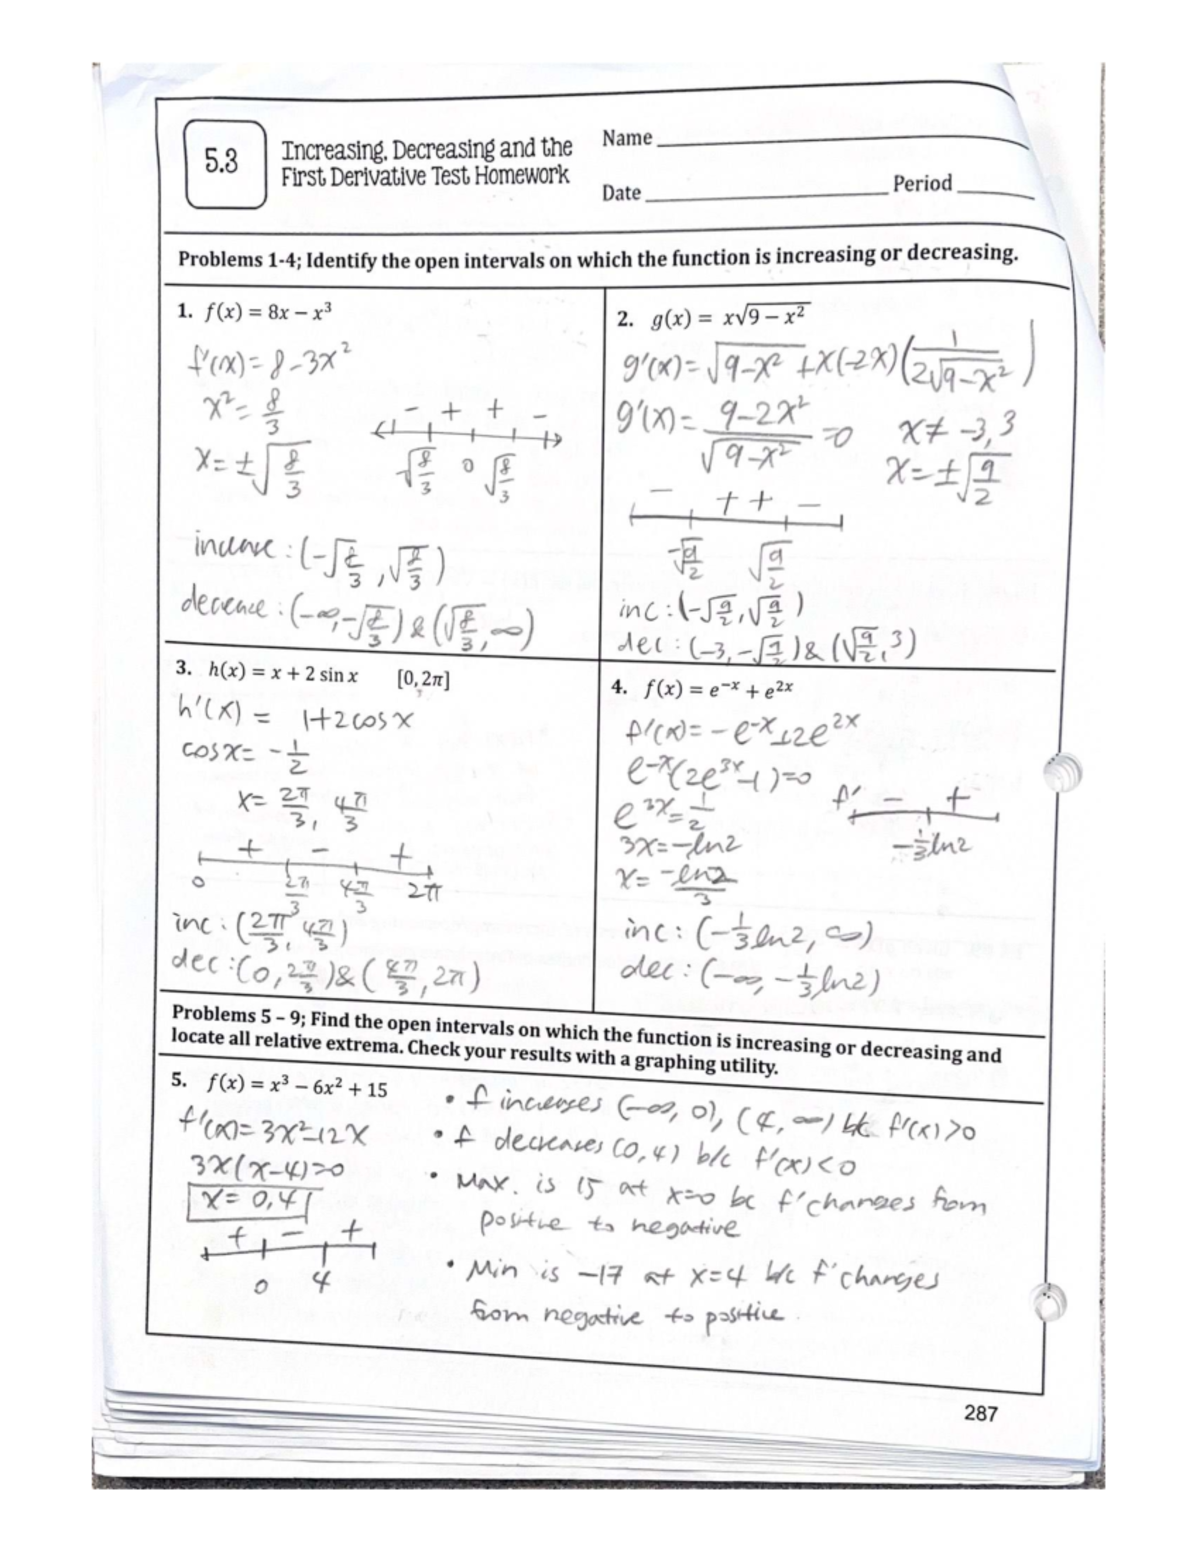 5.3
Increasing, Decreasing and the
First Derivative Test Homework
Name
Date Period
Problems 1-4; Identify the open intervals on which the function is increasing or decreasing.
1. f(x) = 8x – x³
f'(x) = 8 - 3x²
x² = 8/3
x = ±√(8/3)
- + + -
√(8/3) 0 √(8/3)
: (-√(8/3), √(8/3))
: (-∞, -√(8/3)) & (√(8/3), ∞)
2. g(x) = x√(9 – x²)
g'(x) = √(9-x²) + x(-2x)(1/(2√(9-x²)))
g'(x) = (9-2x²)/√(9-x²) = 0 x ≠ -3, 3
x = ±√(9/2)
- + + -
-√(9/2) √(9/2)
inc: (-√(9/2), √(9/2))
dec: (-3, -√(9/2)) & (√(9/2), 3)
3. h(x) = x + 2 sin x [0, 2π]
h'(x) = 1+2cosx
cosx = -1/2
x = 2π/3, 4π/3
+ - +
0 2π/3 4π/3 2π
inc: (2π/3, 4π/3)
dec: (0, 2π/3) & (4π/3, 2π)
4. f(x) = e⁻ˣ + e²ˣ
f'(x) = -e⁻ˣ+2e²ˣ
e⁻ˣ(2e³ˣ-1)=0
e³ˣ = 1/2
3x = -ln2
x = -ln2/3
f' - +
-1/3 ln2
inc: (-1/3 ln2, ∞)
dec: (-∞, -1/3 ln2)
Problems 5 – 9; Find the open intervals on which the function is increasing or decreasing and
locate all relative extrema. Check your results with a graphing utility.
5. f(x) = x³ – 6x² + 15
f'(x) = 3x²-12x
3x(x-4)=0
x = 0, 4
+ - +
0 4
• f increases (-∞, 0), (4, ∞) b/c f'(x) > 0
• f decreases (0, 4) b/c f'(x) < 0
• Max. is 15 at x=0 bc f' changes from
positive to negative
• Min is -17 at x=4 b/c f' changes
from negative to positive.
287